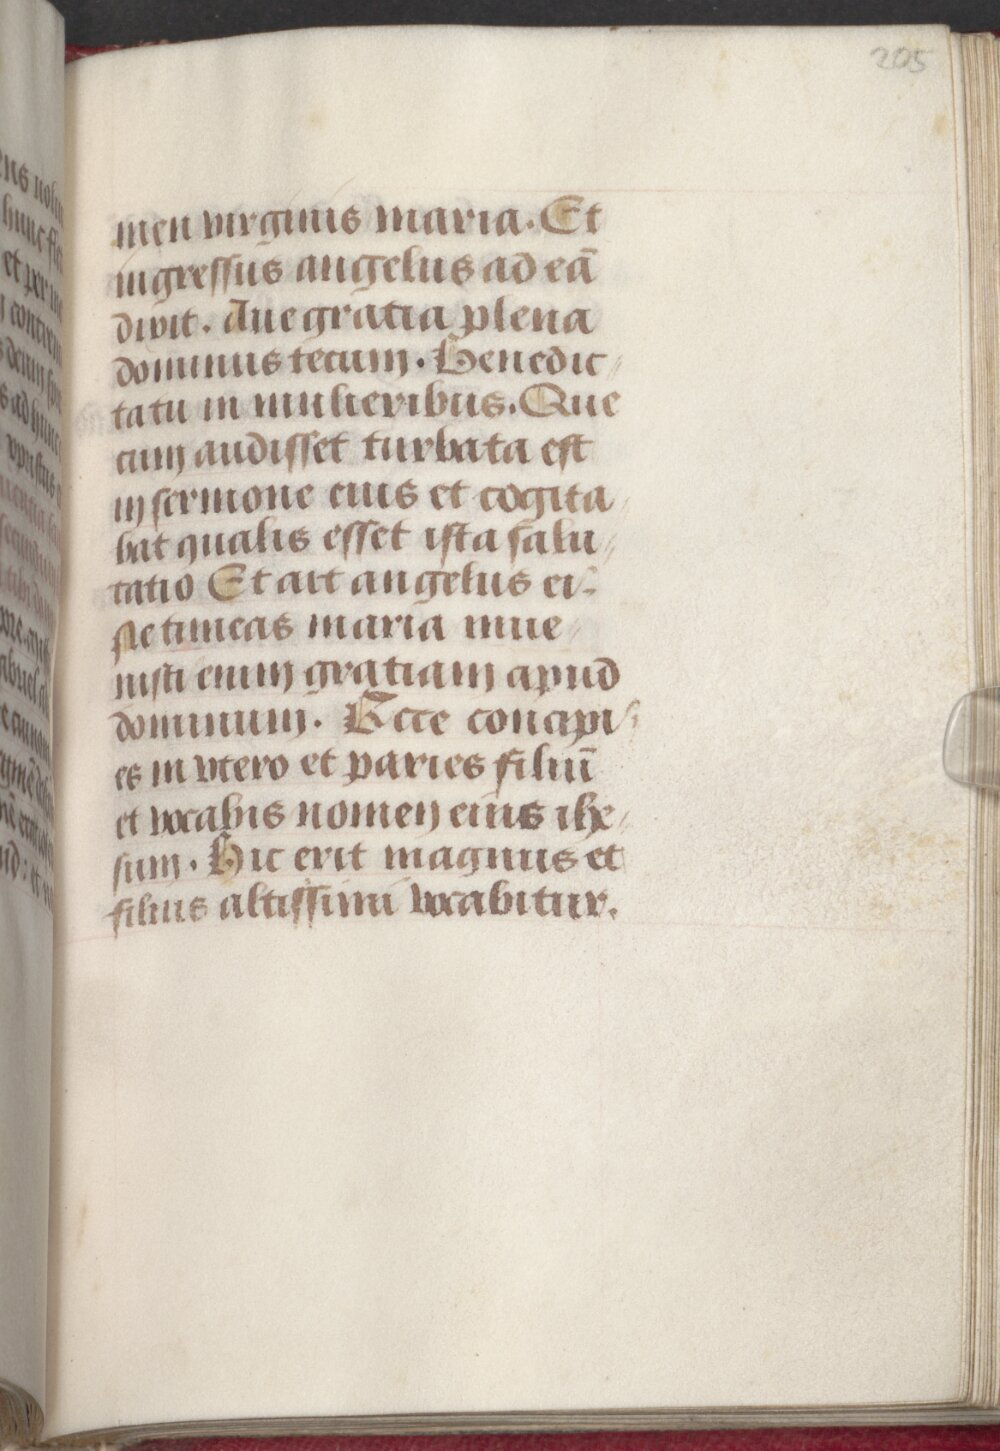 205
men virginis maria. Et
ingressus angelus ad eā
dixit. Aue gratia plena
dominus tecum. Benedic
ta tu in mulieribus. Que
cum audisset turbata est
in sermone eius et cogita
bat qualis esset ista salu
tatio Et ait angelus ei.
Ne timeas maria inue
nisti enim gratiam apud
dominum. Ecce concipi
es in vtero et paries filiū
et vocabis nomen eius ihe
sum. Hic erit magnus et
filius altissimi vocabitur.